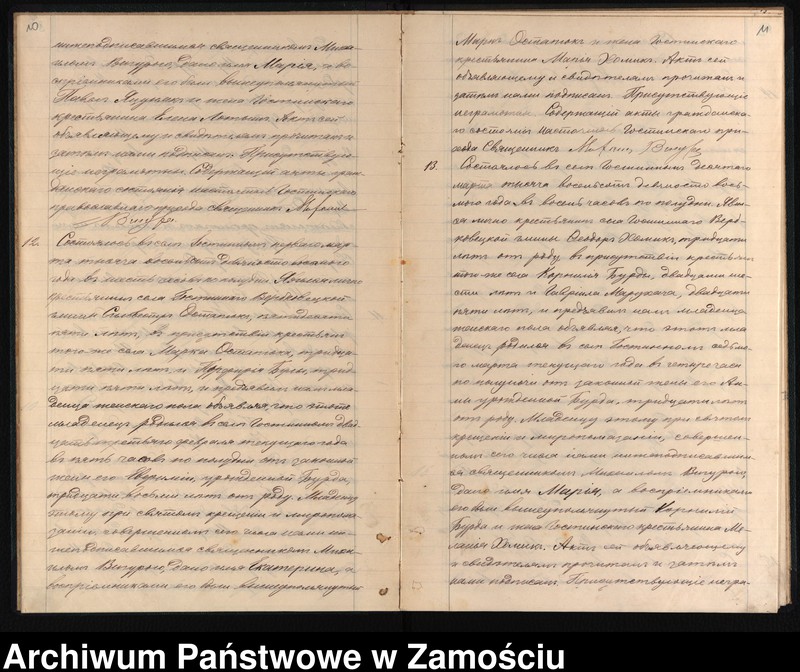 10
нижеподписавшимся священникомъ Миха-
иломъ Вигурою, дано имя Марія, а во-
спріемниками его были вышеупомянутый
Павелъ и жена Гостинскаго
крестьянина Елена Актъ сей
объявляющему и свидѣтелямъ прочитанъ и
затѣмъ нами подписанъ. Присутствую-
щіе неграмотны. Содержащій акты граж-
данскаго состоянія настоятель Гостинскаго
православнаго прихода священникъ Михаилъ
Вигура.
12. Состоялось въ селѣ Гостинномъ перваго мар-
та тысяча восемьсотъ девяносто восьмого
года въ шесть часовъ по полудни. Явился лично
крестьянинъ села Гостинного Вербковецкой
гмины Сильвестръ Остапюкъ, пятидесяти
пяти лѣтъ, въ присутствіи крестьянъ
того же села Марка Остапюка, тридца-
ти пяти лѣтъ и трид-
цати пяти лѣтъ, и предъявилъ намъ мла-
денца женскаго пола объявляя, что этотъ
младенецъ родился въ селѣ Гостинномъ двад-
цать третьяго февраля текущаго года
въ пять часовъ по полудни отъ законной
жены его Евфиміи, урожденной Бурда,
тридцати восьми лѣтъ отъ роду. Младенцу
этому при святомъ крещеніи и миропома-
заніи, совершенномъ сего числа нами ни-
жеподписавшимся священникомъ Миха-
иломъ Вигурою, дано имя Екатерина, а
воспріемниками его были вышеупомянутый
11
Марко Остапюкъ и жена Гостинскаго
крестьянина Марья Хомикъ. Актъ сей
объявляющему и свидѣтелямъ прочитанъ и
затѣмъ нами подписанъ. Присутствующіе
неграмотны. Содержащій акты гражданска-
го состоянія настоятель Гостинскаго при-
хода Священникъ Михаилъ Вигура
13. Состоялось въ селѣ Гостинномъ десятаго
марта тысяча восемьсотъ девяносто вось-
мого года въ восемь часовъ по полудни. Явил-
ся лично крестьянинъ села Гостинного Верб-
ковецкой гмины Ѳеодоръ Хомикъ, тридцати
лѣтъ отъ роду, въ присутствіи крестьянъ
того же села Корнилія Бурды, двадцати ше-
сти лѣтъ и Гавріила двадцати
пяти лѣтъ, и предъявилъ намъ младенца
женскаго пола объявляя, что этотъ мла-
денецъ родился въ селѣ Гостинномъ седьма-
го марта текущаго года въ четыре часа
по полуночи отъ законной жены его Ан-
ны урожденной Бурда, тридцати лѣтъ
отъ роду. Младенцу этому при святомъ
крещеніи и миропомазаніи, совершен-
номъ сего числа нами нижеподписавшим-
ся священникомъ Михаиломъ Вигурою,
дано имя Марія, а воспріемниками
его были вышеупомянутый Корнилій
Бурда и жена Гостинскаго крестьянина Ме-
ланія Хомикъ. Актъ сей объявляющему
и свидѣтелямъ прочитанъ и затѣмъ
нами подписанъ. Присутствующіе негра-
Archiwum Państwowe w Zamościu